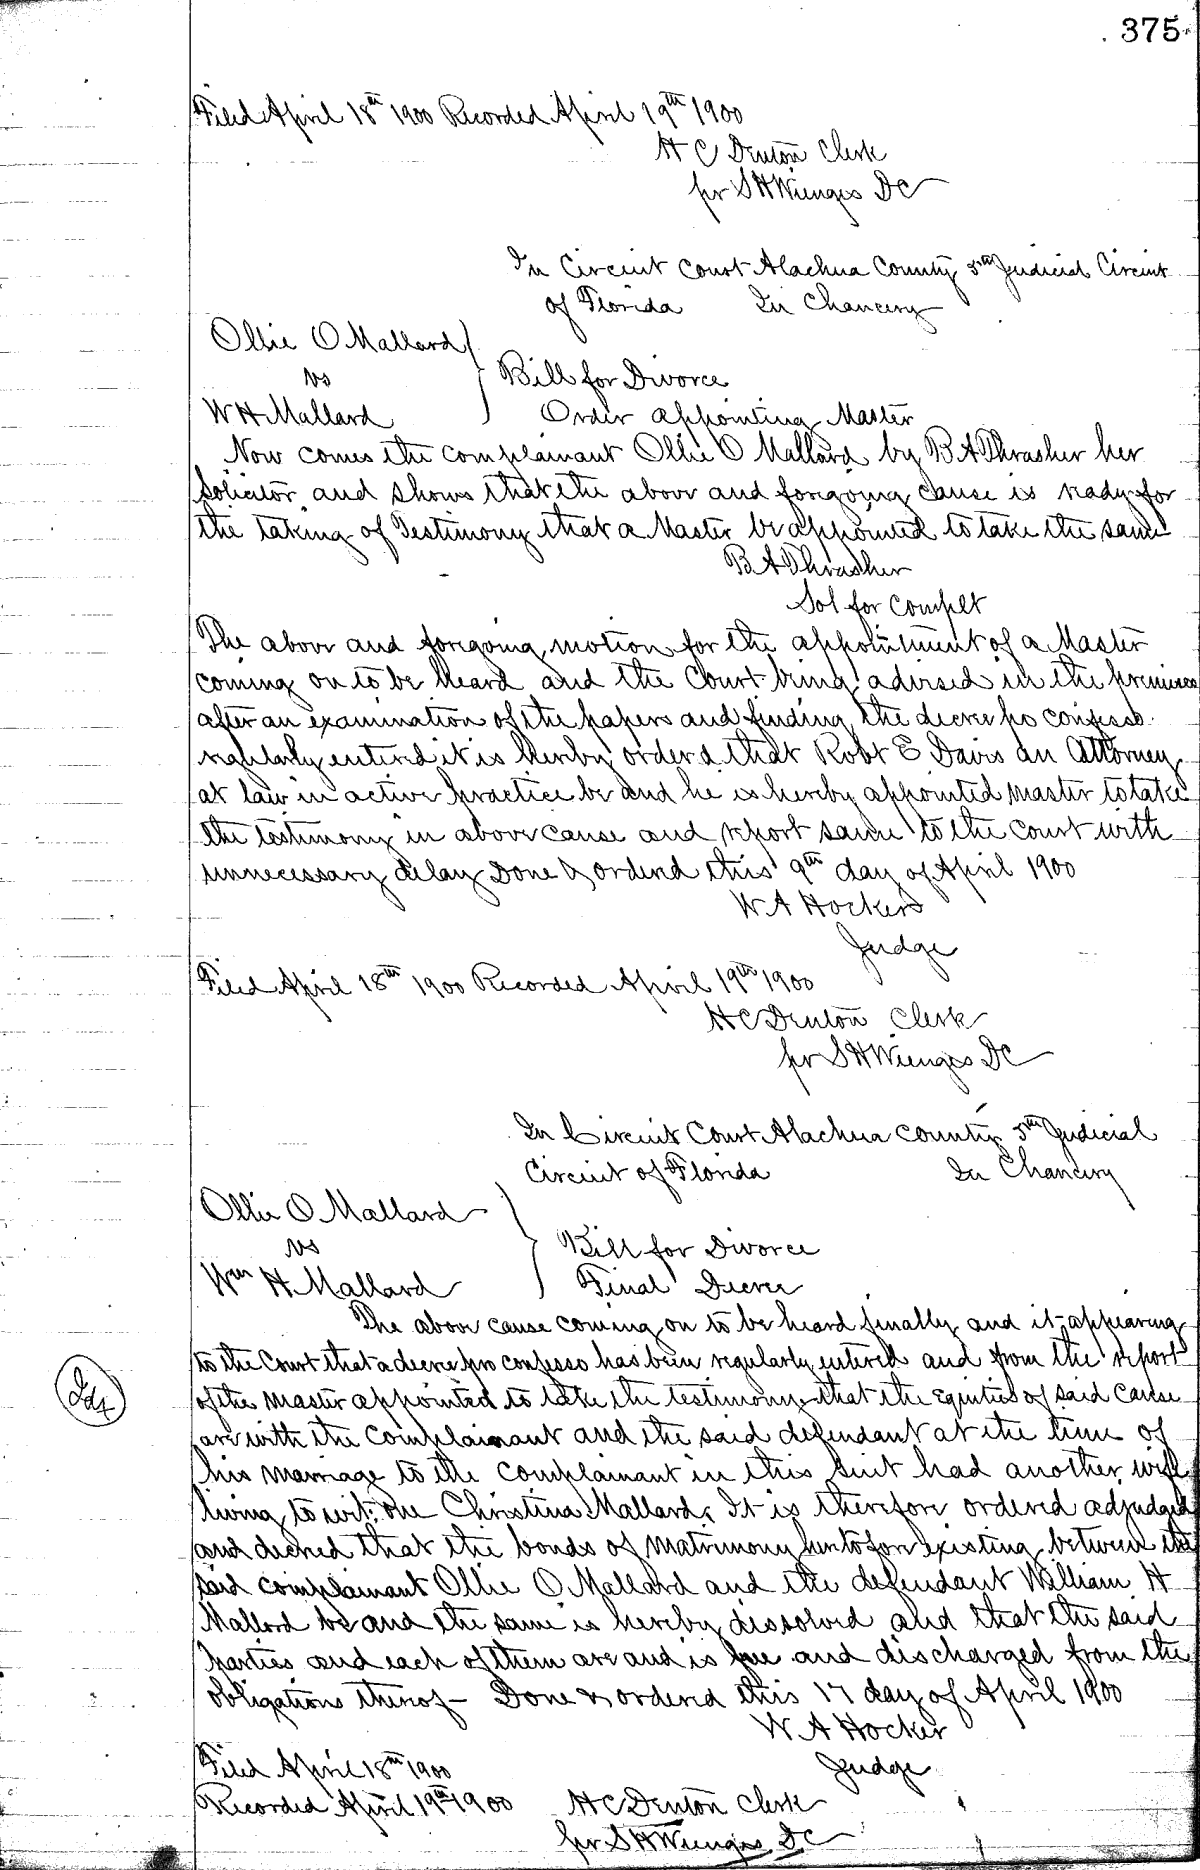 375
Filed April 18th 1900 Recorded April 19th 1900
H C Denton Clerk
per S H Wienges DC
In Circuit Court Alachua County 5th Judicial Circuit
of Florida In Chancery
Ollie O Mallard
vs
Bill for Divorce
W H Mallard Order appointing Master
Now comes the complainant Ollie O Mallard by B A Thrasher her
Solicitor and shows that the above and forgoing cause is ready for
the taking of Testimony that a Master be appointed to take the same
B A Thrasher
Sol for Complt
The above and forgoing motion for the appointment of a Master
coming on to be heard and the Court being advised in the premises
after an examination of the papers and finding the decree pro confesso
regularly entered it is hereby ordered that Robt E Davis an Attorney
at law in active practice be and he is hereby appointed master to take
the testimony in above cause and report same to the court with
unnecessary delay Done & ordered this 9th day of April 1900
W A Hocker
Judge
Filed April 18th 1900 Recorded April 19th 1900
H C Denton Clerk
per S H Wienges DC
In Circuit Court Alachua County 5th Judicial
Circuit of Florida In Chancery
Ollie O Mallard
vs
Bill for Divorce
Wm H Mallard Final Decree
The above cause coming on to be heard finally and it appearing
to the Court that a decree pro confesso has been regularly entered and from the report
of the Master appointed to take the testimony that the equities of said cause
are with the Complainant and the said defendant at the time of
his marriage to the complainant in this suit had another wife
living to wit: one Christina Mallard, It is therefore ordered adjudged
and decreed that the bonds of matrimony heretofore existing between the
said complainant Ollie O Mallard and the defendant William H
Mallard be and the same is hereby dissolved and that the said
parties and each of them are and is free and discharged from the
obligations thereof – Done & ordered this 17 day of April 1900
W A Hocker
Judge
Filed April 18th 1900
Recorded April 19th 1900 H C Denton Clerk
per S H Wienges DC